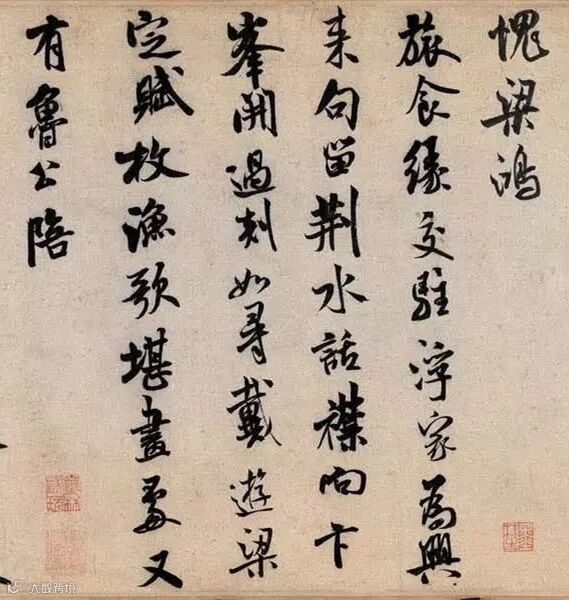 愧梁鴻
旅食緣交駐浮家為興
来句留荆水話襟向卞
峯開過剡如尋戴遊梁
定賦枚漁歌堪畫處又
有魯公陪
大数跨境